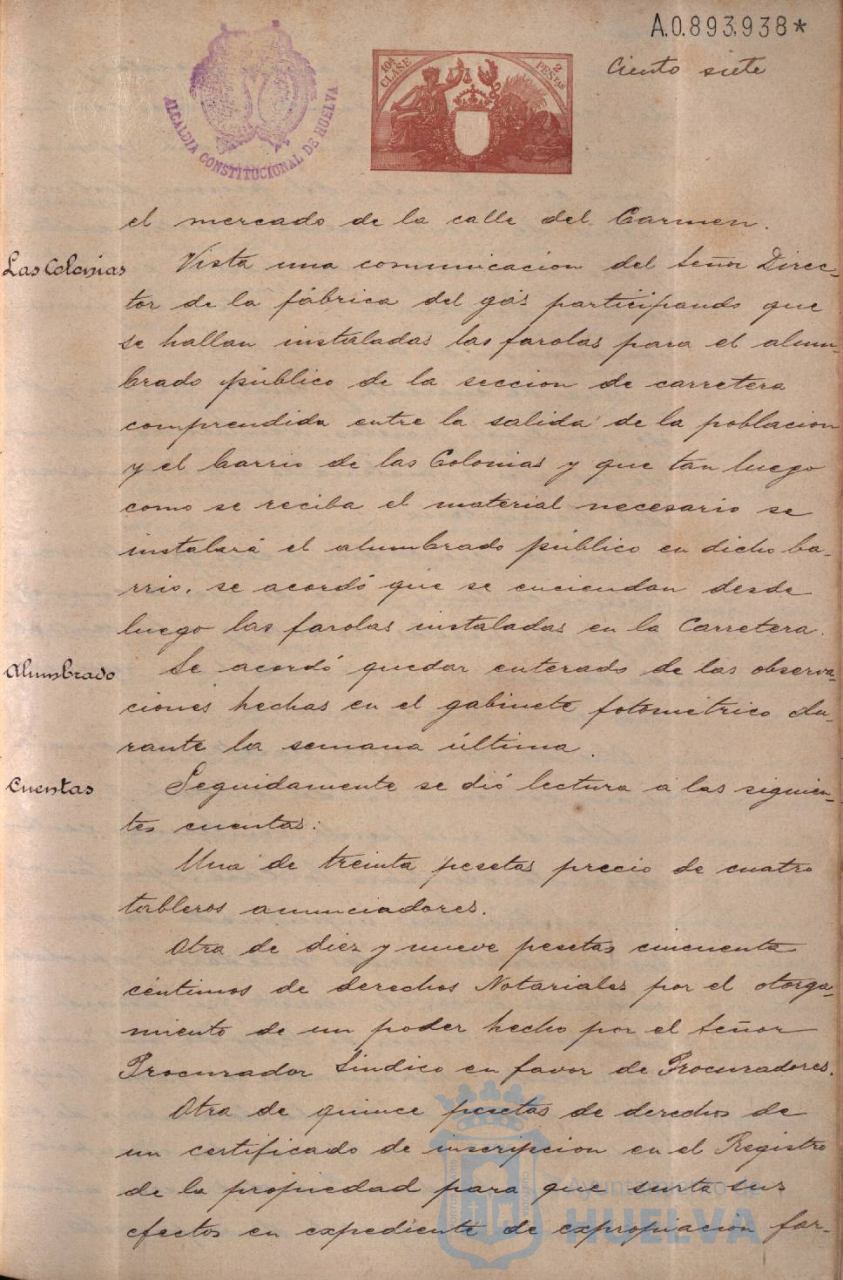 A.0.893.938*
ALCALDIA CONSTITUCIONAL DE HUELVA
10ª CLASE
2 PESETAS
Ciento siete
el mercado de la calle del Carmen.
Las Colonias
Vista una comunicacion del Señor Direc-
tor de la fábrica del gás participando que
se hallan instaladas las farolas para el alum-
brado público de la seccion de carretera
comprendida entre la salida de la poblacion
y el barrio de las Colonias y que tan luego
como se reciba el material necesario se
instalará el alumbrado público en dicho ba-
rrio, se acordó que se enciendan desde
luego las farolas instaladas en la Carretera.
Alumbrado
Se acordó quedar enterado de las observa-
ciones hechas en el gabinete fotométrico du-
rante la semana última.
Cuentas
Seguidamente se dió lectura á las siguien-
tes cuentas:
Una de treinta pesetas precio de cuatro
tableros anunciadores.
Otra de diez y nueve pesetas cincuenta
céntimos de derechos Notariales por el otorga-
miento de un poder hecho por el Señor
Procurador Síndico en favor de Procuradores.
Otra de quince pesetas de derechos de
un certificado de inscripcion en el Registro
de la propiedad para que surta sus
efectos en expediente de expropiacion for-
Ayuntamiento de
HUELVA